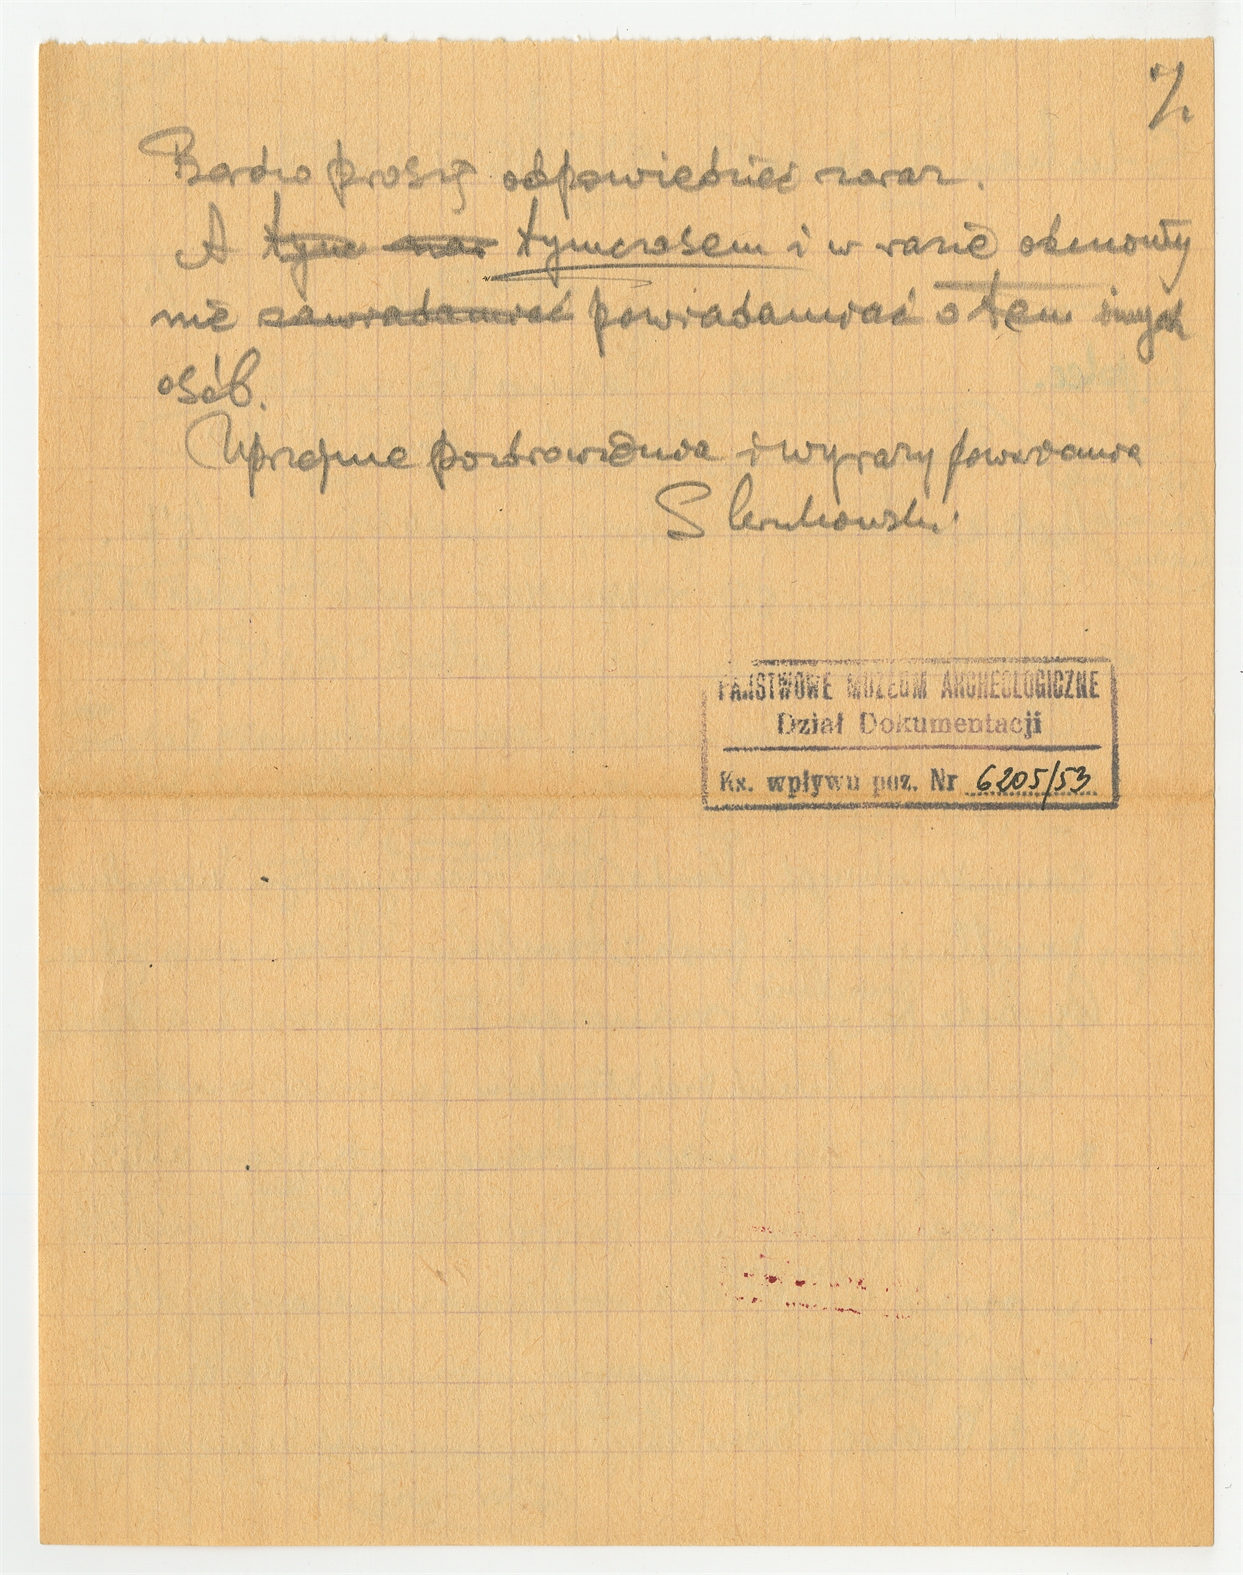 7.
Bardzo proszę odpowiedzieć zaraz.
A tym tymczasem i w razie odmowy
nie zawiadamiać powiadamiać o tem innych
osób.
Uprzejme pozdrowienia i wyrazy poważania
S
PAŃSTWOWE MUZEUM ARCHEOLOGICZNE
Dział Dokumentacji
Ks. wpływu poz. Nr 6205/53